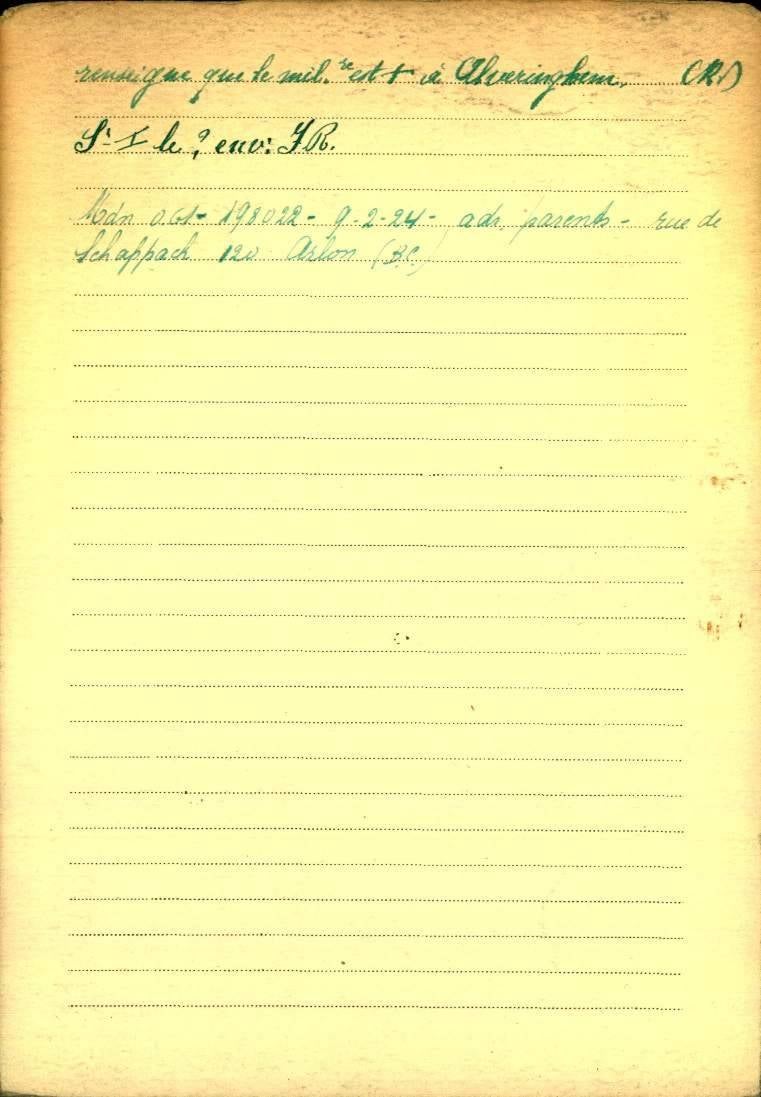 renseigne que le mil.re est † à Alveringhem. (R.)
St I le ? env: JR.
Mdn 061 - 198022 - 9-2-24 - adr parents - rue de
Schappach 120 Arlon (B.C.)